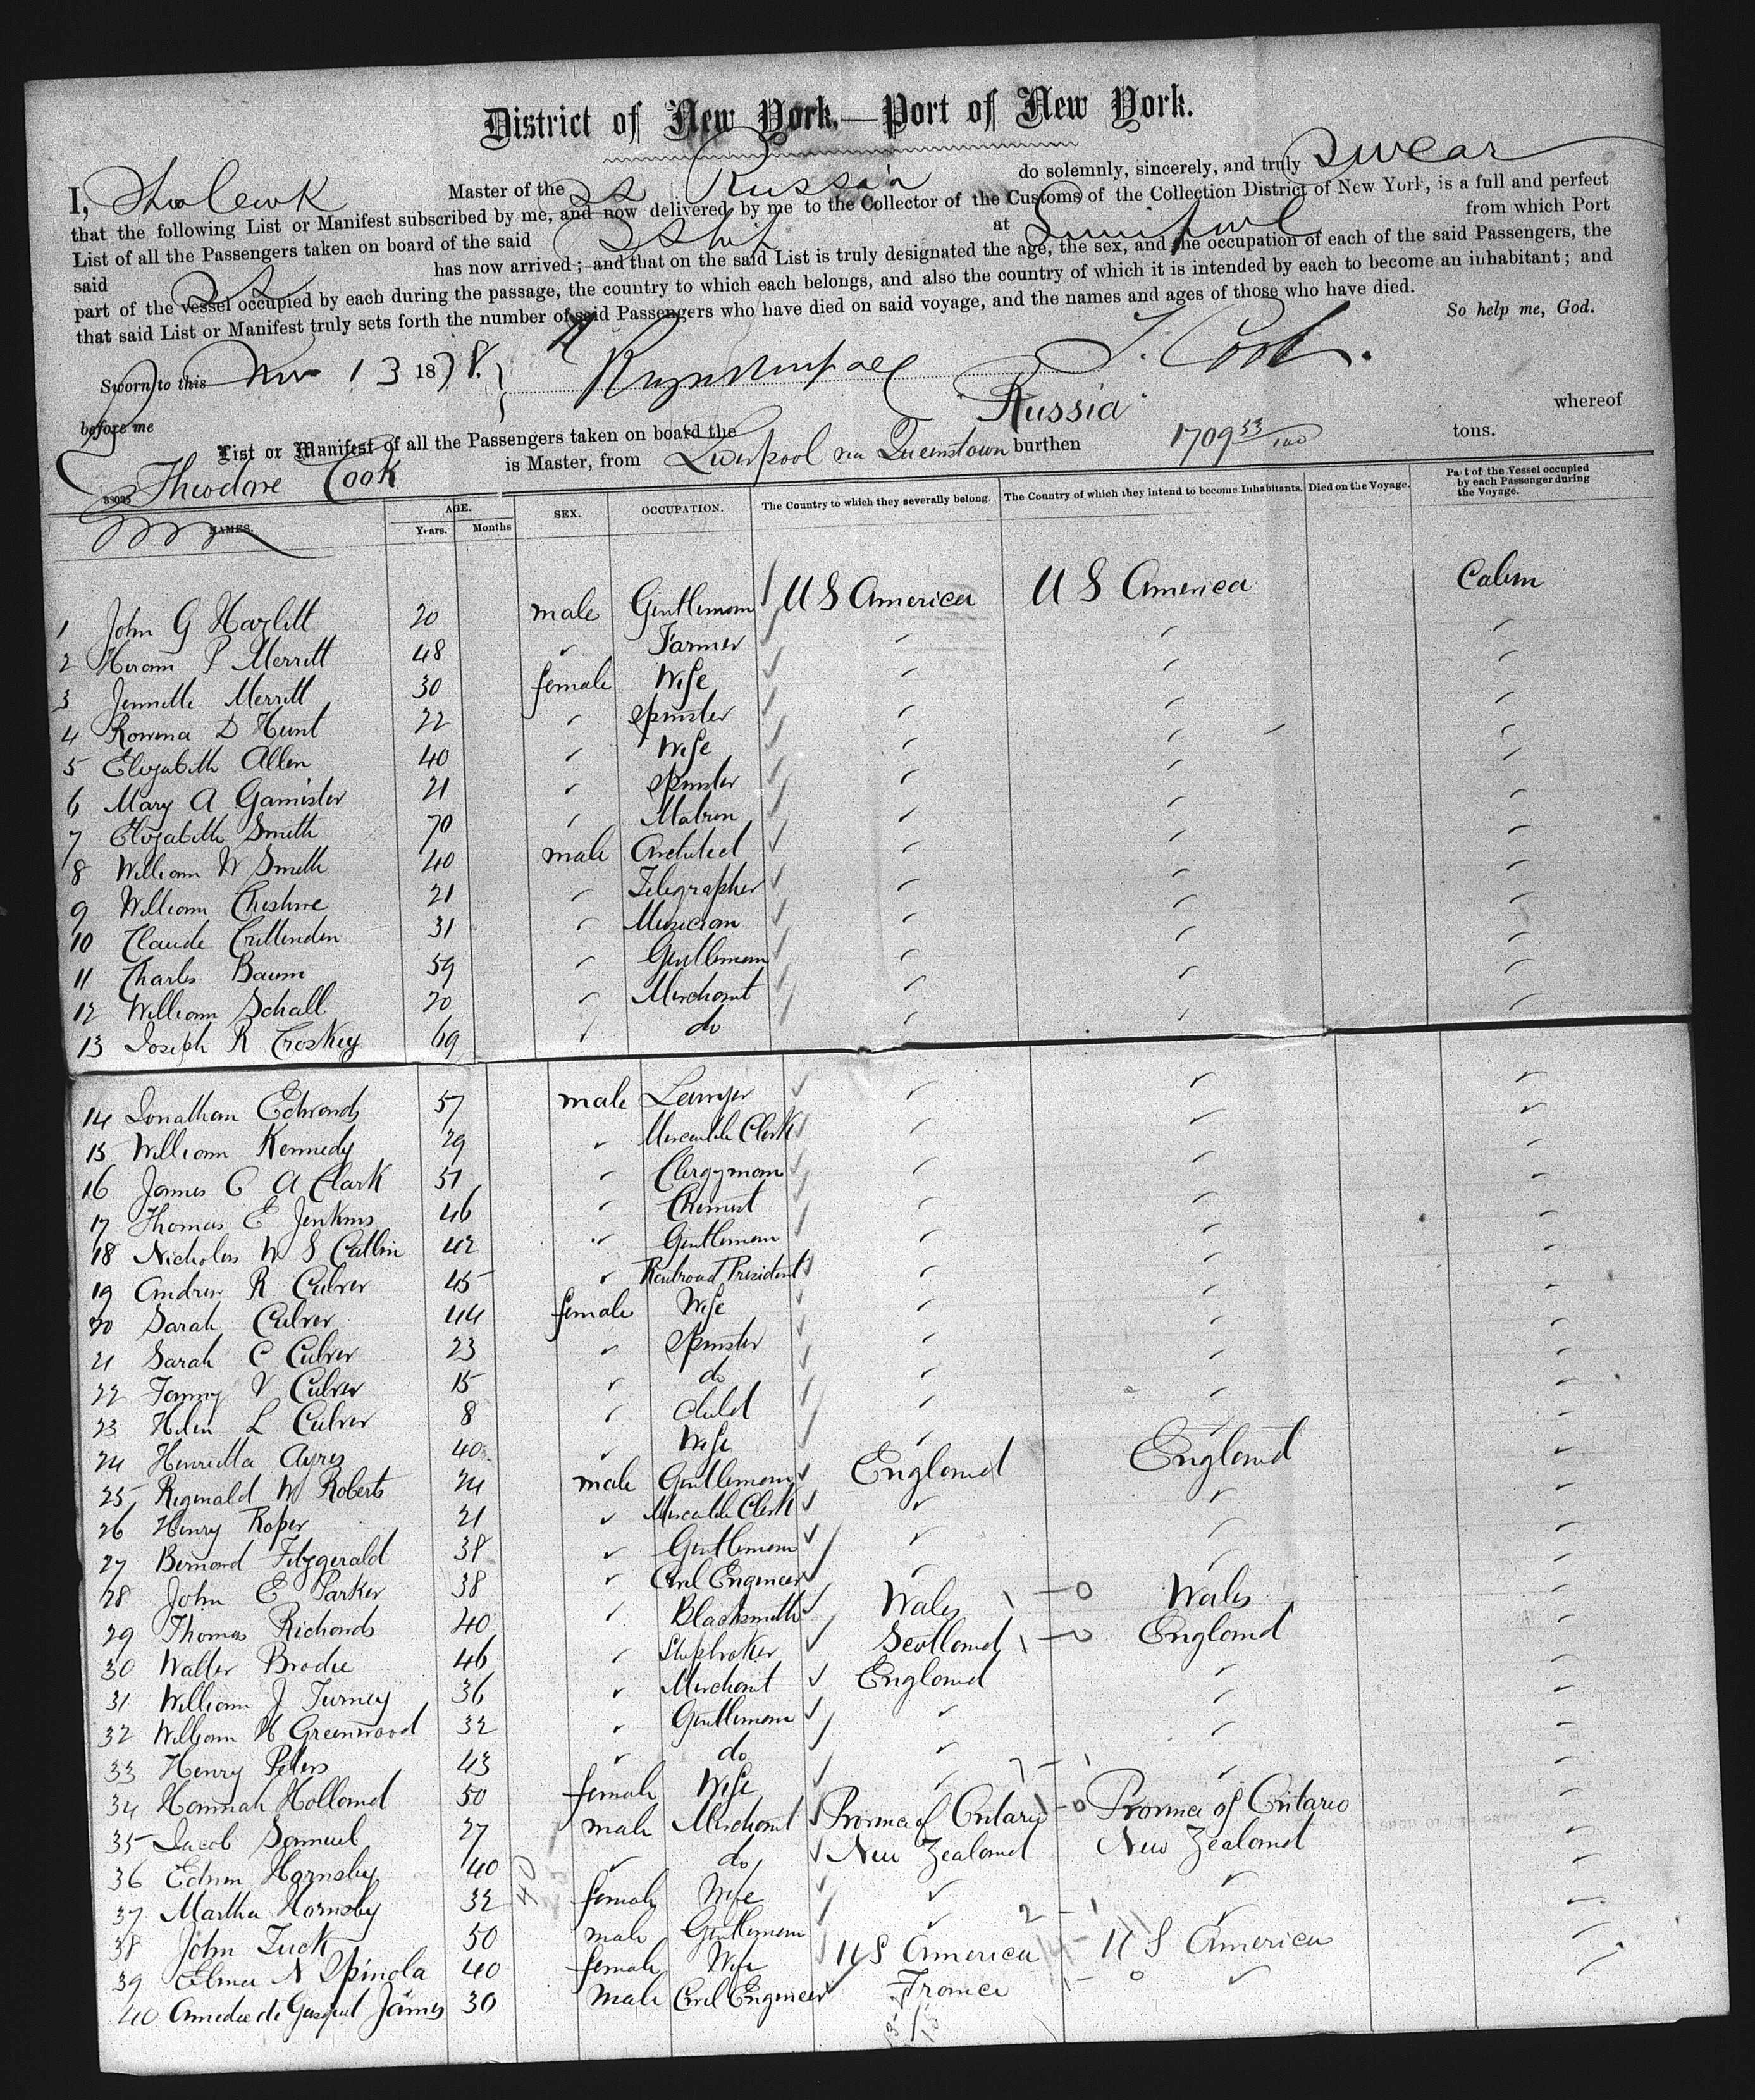 District of New York.—Port of New York.
I, Theo Cook Master of the SS Russia do solemnly, sincerely, and truly swear
that the following List or Manifest subscribed by me, and now delivered by me to the Collector of the Customs of the Collection District of New York, is a full and perfect
List of all the Passengers taken on board of the said S Ship at Liverpool from which Port
said SS has now arrived; and that on the said List is truly designated the age, the sex, and the occupation of each of the said Passengers, the
part of the vessel occupied by each during the passage, the country to which each belongs, and also the country of which it is intended by each to become an inhabitant; and
that said List or Manifest truly sets forth the number of said Passengers who have died on said voyage, and the names and ages of those who have died.
So help me, God.
Sworn to this Nov 13 1878. T. Cook.
before me
List or Manifest of all the Passengers taken on board the Russia whereof
Theodore Cook is Master, from Liverpool via Queenstown burthen 1709 53/100 tons.
NAMES. AGE. Years. Months SEX. OCCUPATION. The Country to which they severally belong. The Country of which they intend to become Inhabitants. Died on the Voyage. Part of the Vessel occupied by each Passenger during the Voyage.
1 John G Hazlitt 20 male Gentleman U S America U S America Cabin
2 Hiram P Merritt 48 " Farmer
3 Jennette Merritt 30 female Wife
4 Rowena D Hunt 22 " Spinster
5 Elizabeth Allen 40 " Wife
6 Mary A Gamister 21 " Spinster
7 Elizabeth Smith 70 " Matron
8 William W Smith 40 male Architect
9 William Cheshire 21 " Telegrapher
10 Claude Crittenden 31 " Musician
11 Charles Baum 59 " Gentleman
12 William Schall 20 " Merchant
13 Joseph R Croskey 69 " do
14 Jonathan Edwards 57 male Lawyer
15 William Kennedy 29 " Mercantile Clerk
16 James C A Clark 51 " Clergyman
17 Thomas E Jenkins 46 " Chemist
18 Nicholas W S Catlin 42 " Gentleman
19 Andrew R Culver 45 " Railroad President
20 Sarah Culver 44 female Wife
21 Sarah C Culver 23 " Spinster
22 Fanny V Culver 15 " do
23 Helen L Culver 8 " Child
24 Henrietta Ayres 40 " Wife
25 Reginald W Roberts 24 male Gentleman England England
26 Henry Roper 21 " Mercantile Clerk
27 Bernard Fitzgerald 38 " Gentleman
28 John E Parker 38 " Civil Engineer
29 Thomas Richards 40 " Blacksmith Wales Wales
30 Walter Brodie 46 " Shipbroker Scotland England
31 William J Turney 36 " Merchant England
32 William H Greenwood 32 " Gentleman
33 Henry Peters 43 " do
34 Hannah Holland 50 female Wife
35 Jacob Samuel 27 male Merchant Province of Ontario Province of Ontario
36 Edwin Hornsby 40 " do New Zealand New Zealand
37 Martha Hornsby 32 female Wife
38 John Tuck 50 male Gentleman
39 Elmer N Spinola 40 female Wife U S America U S America
40 Amedee de James 30 Male Civil Engineer France